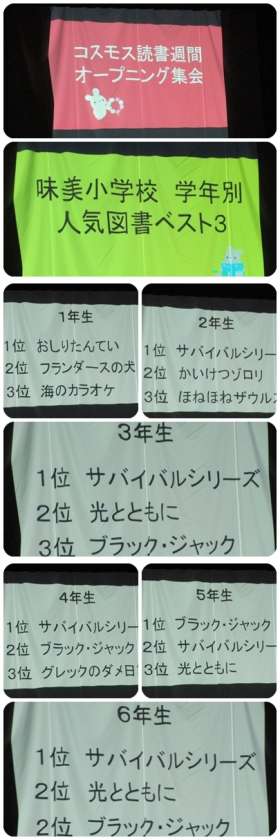 コスモス読書週間
オープニング集会
味美小学校 学年別
人気図書ベスト3
1年生
1位 おしりたんてい
2位 フランダースの犬
3位 海のカラオケ
2年生
1位 サバイバルシリー
2位 かいけつゾロリ
3位 ほねほねザウルス
3年生
1位 サバイバルシリーズ
2位 光とともに
3位 ブラック・ジャック
4年生
1位 サバイバルシリー
2位 ブラック・ジャック
3位 グレッグのダメ日
5年生
1位 ブラック・ジャック
2位 サバイバルシリー
3位 光とともに
6年生
1位 サバイバルシリーズ
2位 光とともに
2位 ブラック・ジャック